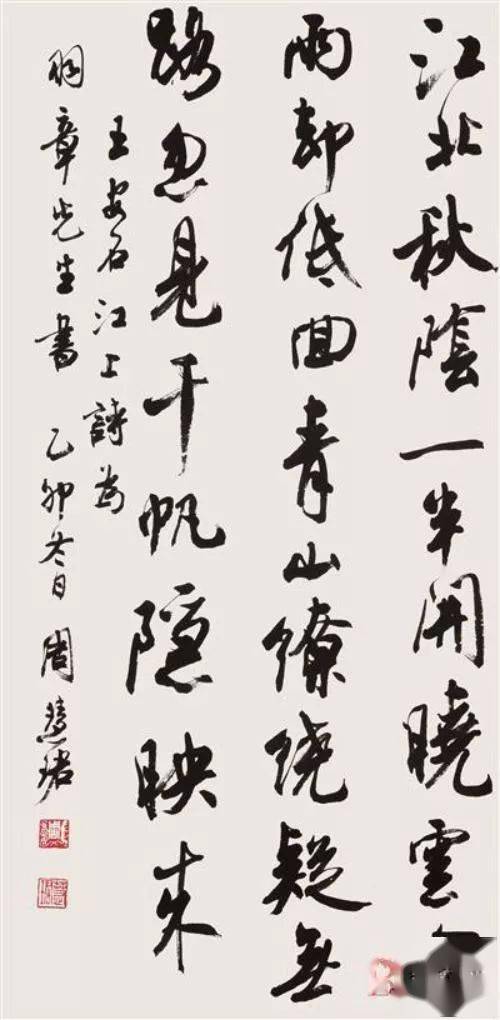 江北秋陰一半開曉雲
雨却低回青山繚繞疑無
路忽見千帆隱映来
王安石江上詩為
章先生書 乙卯冬日 周慧珺